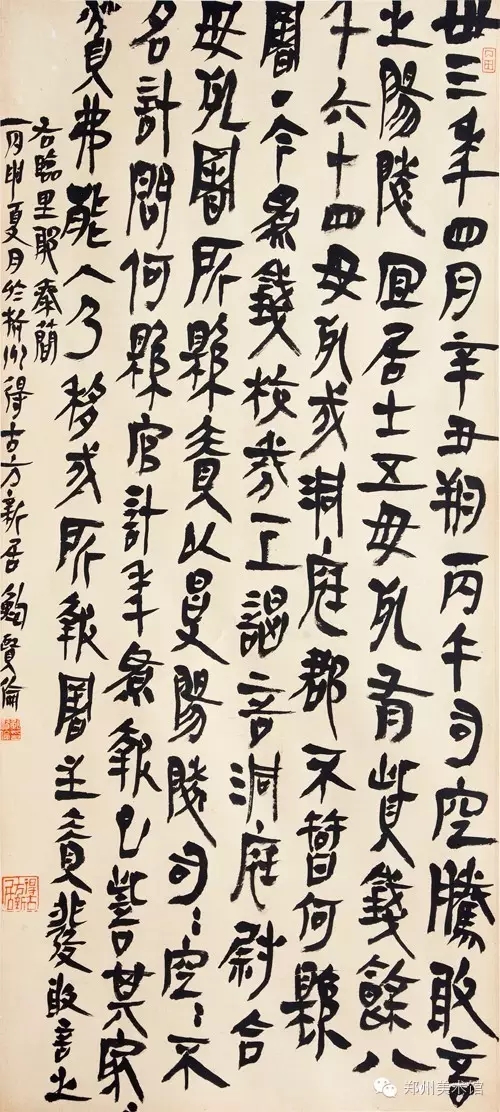 卅三年四月辛丑朔丙午司空騰敢言
之陽陵宜居士五毋死有貲錢餘八
千六十四毋死戍洞庭郡不智何縣
署·今為錢校券一上謁言洞庭尉令
毋死署所縣責以受陽陵司〻空〻不
名計問何縣官計年為報已訾其家〻
貧弗能入乃移戍所報署主責發敢言之
右臨里耶秦簡
丙申夏月於杭州得古方新居鮑賢倫
郑州美术馆